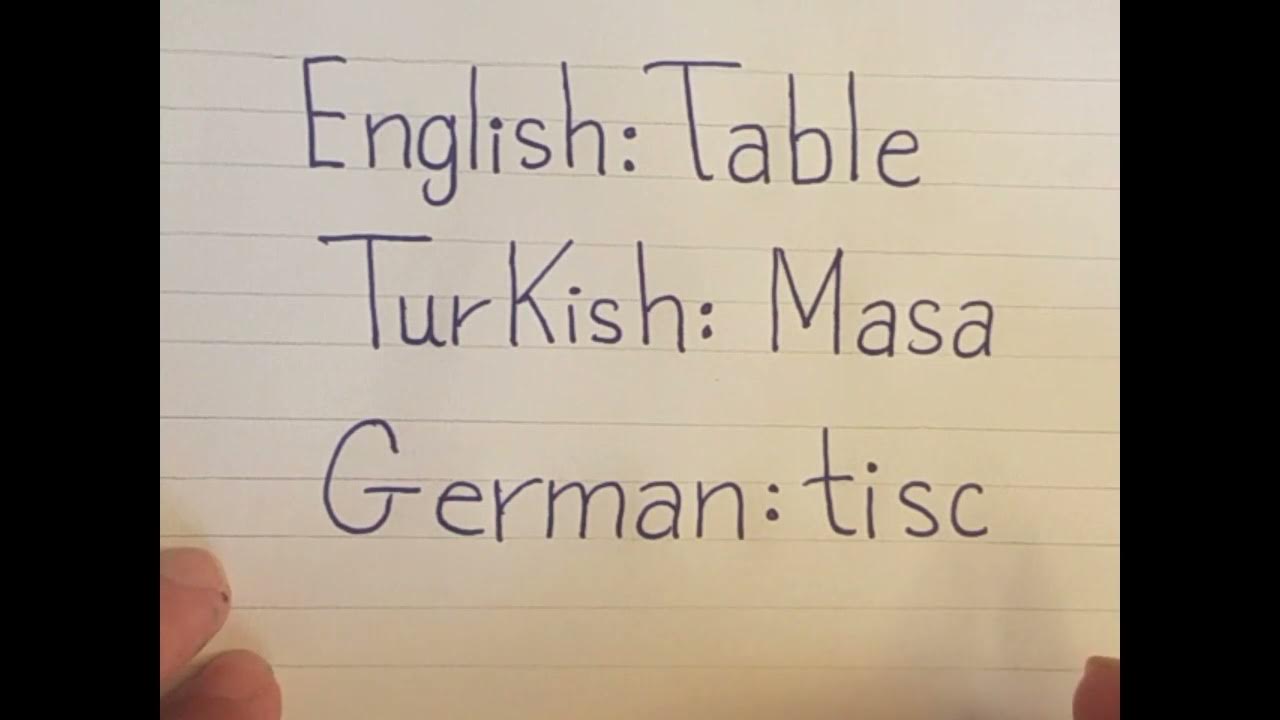 English: Table
Turkish: Masa
German: tisc